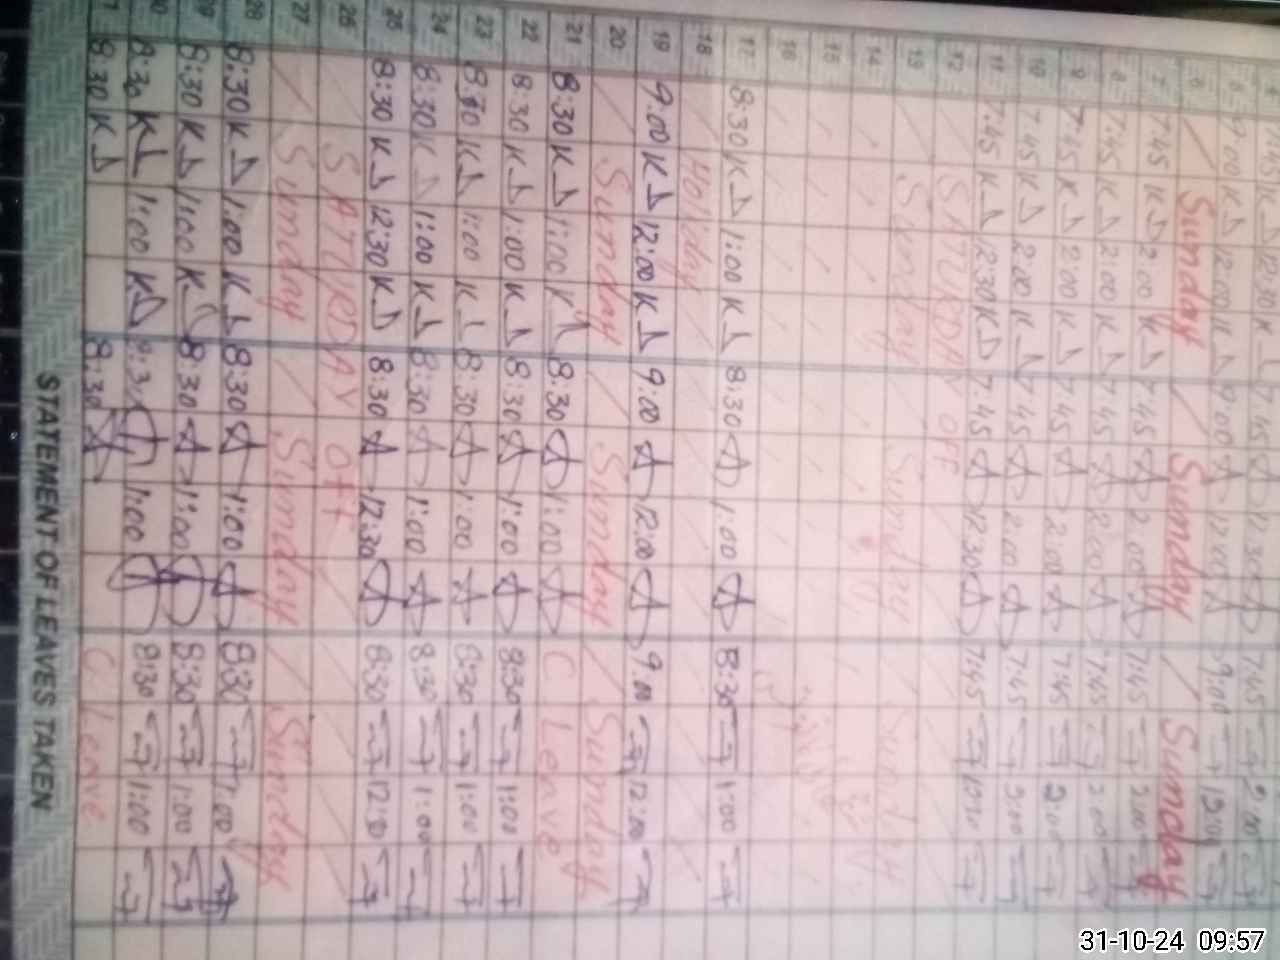 4 7:45 KD 12:30 KD 7.45 12.30 7.45
5 9:00 KD 12:00 KD 9:00 12:00 9:00 12:00
6 Sunday Sunday Sunday
7 7.45 KD 2.00 KD 7.45 2.00 7.45 2.00
8 7.45 KD 2.00 KD 7.45 2.00 7.45 2.00
9 7.45 KD 2.00 KD 7.45 2.00 7.45 2.00
10 7.45 KD 2.00 KD 7.45 2.00 7.45 2.00
11 7.45 KD 12:30 KD 7.45 12.30 7.45
12 SATURDAY OFF
13 Sunday Sunday Sunday
14
15
16
17 8:30 KD 1:00 KD 8:30 1:00 8:30 1:00
18 Holiday
19 9.00 KD 12:00 KD 9:00 12:00 9.00 12:00
20 Sunday Sunday Sunday
21 8:30 KD 1:00 KD 8:30 1:00 C Leave
22 8:30 KD 1:00 KD 8:30 1:00 8:30 1:00
23 8:30 KD 1:00 KD 8:30 1:00 8:30 1:00
24 8:30 KD 1:00 KD 8:30 1:00 8:30 1:00
25 8:30 KD 12:30 KD 8:30 12:30 8:30 12:30
26 SATURDAY OFF
27 Sunday Sunday Sunday
28 8:30 KD 1:00 KD 8:30 1:00 8:30 1:00
29 8:30 KD 1:00 KD 8:30 1:00 8:30 1:00
30 8:30 KD 1:00 KD 8:30 1:00 8:30 1:00
8:30 KD 8:30 C Leave
STATEMENT OF LEAVES TAKEN
31-10-24 09:57